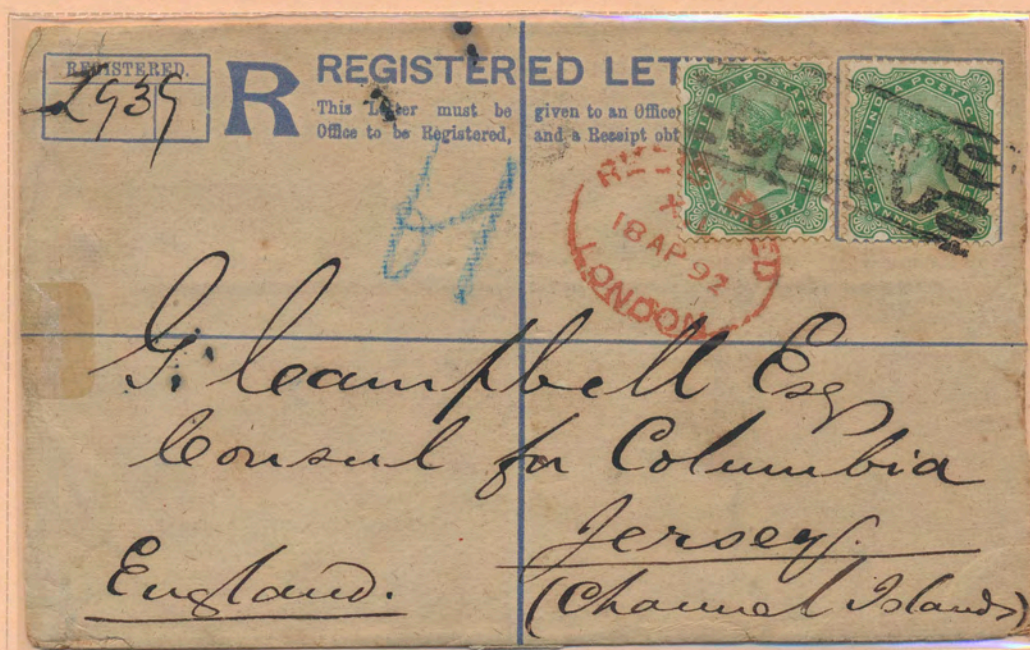 REGISTERED.
R
REGISTERED LET
This Letter must be given to an Office
Office to be Registered, and a Receipt obt
INDIA POSTAGE
TWO ANNAS SIX
INDIA POSTAGE
TWO ANNAS
REGISTERED
18 AP 92
LONDON
G. Campbell Esq
Consul for Columbia
Jersey.
England.
(Channel Islands)